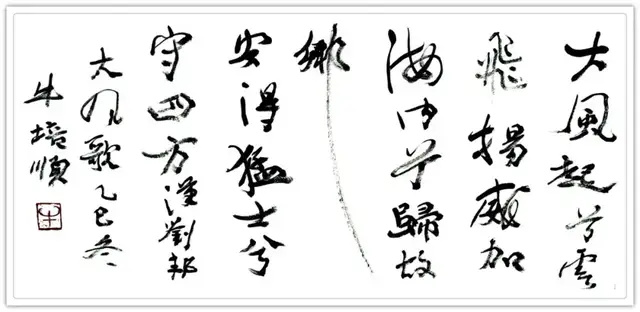 大風起兮雲
飛揚威加
海内兮歸故
鄉
安得猛士兮
守四方漢劉邦
大風歌乙巳冬
牛培順
牛